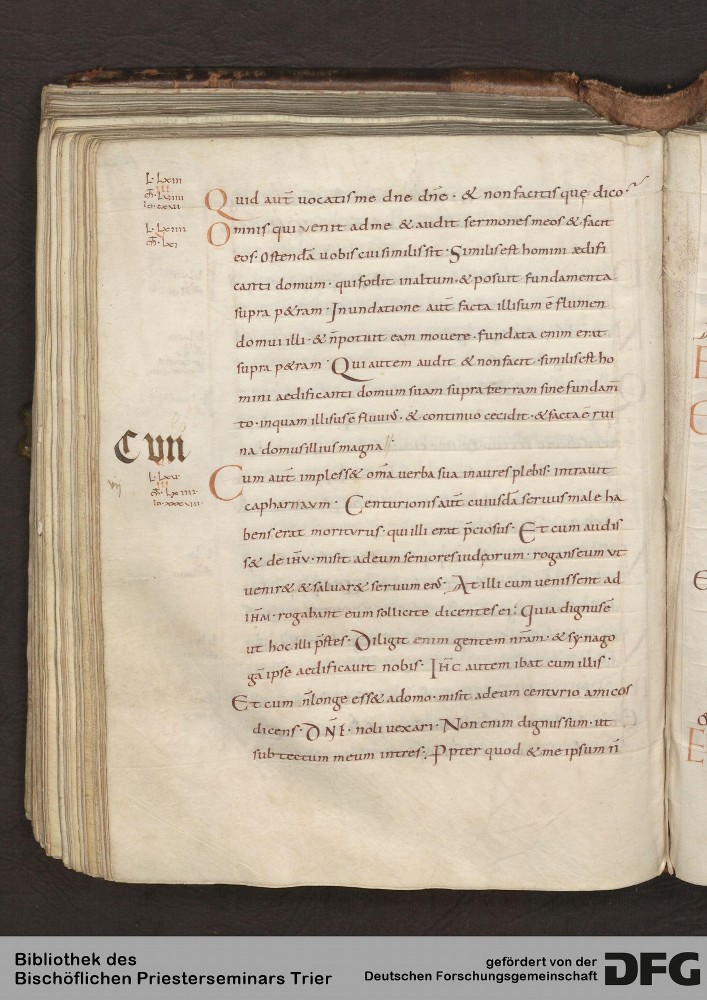 L. lxiii
Quid aut̄ uocatis me dn̄e dn̄e · & non facitis quę dico ·
Omnis qui venit ad me & audit sermones meos & facit
eos · Ostendā uobis cui similis sit · Similis est homini ædifi
canti domum · qui fodit in altum · & posuit fundamenta
supra p&ram · Inundatione aut̄ facta illisum ē flumen
domui illi · & n̄ potuit eam mouere · fundata enim erat
supra p&ram · Qui autem audit & non facit · similis est ho
mini aedificanti domum suam supra terram sine fundam̄
to · in quam illisus ē fluuiꝰ · & continuo cecidit · & facta ē rui
na domus illius magna
Cvm
L. lxv
Cum aut̄ impless& om̄a uerba sua in aures plebis · intrauit
capharnaum · Centurionis aut̄ cuiusdā seruus male ha
bens erat moriturus · qui illi erat p̄ciosus · Et cum audis
s& de ih̄u · misit ad eum seniores iudęorum · rogans eum ut
uenir& & saluar& seruum eiꝰ · At illi cum uenissent ad
ih̄m · rogabant eum sollicite dicentes ei · Quia dignus ē
ut hoc illi p̄stes · Diligit enim gentem nr̄am · & synago
gā ipse aedificauit nobis · Ih̄c autem ibat cum illis ·
Et cum n̄ longe ess& a domo · misit ad eum centurio amicos
dicens · Dn̄e · noli uexari · Non enim dignus sum · ut
sub tectum meum intres · Ppter quod & me ipsum n̄
Bibliothek des
Bischöflichen Priesterseminars Trier
gefördert von der
Deutschen Forschungsgemeinschaft
DFG